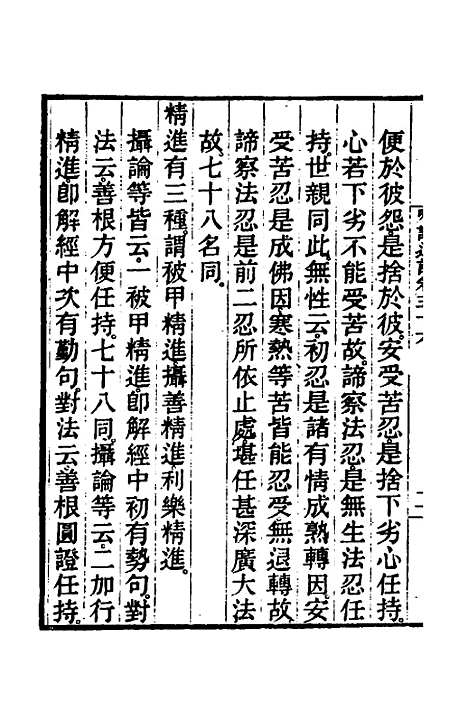 便於彼怨是捨於彼。安受苦忍是捨下劣心任持。
心若下劣不能受苦故。諦察法忍是無生法忍任
持。世親同此。無性云。初忍是諸有情成熟轉因。安
受苦忍是成佛因。寒熱等苦皆能忍受無退轉故。
諦察法忍是前二忍所依止處。堪任甚深廣大法
故。七十八名同。
精進有三種。謂被甲精進。攝善精進。利樂精進。
攝論等皆云。一被甲精進。卽解經中初有勢句。對
法云。善根方便任持。七十八同。攝論等云。二加行
精進。卽解經中次有勤句。對法云。善根圓證任持。